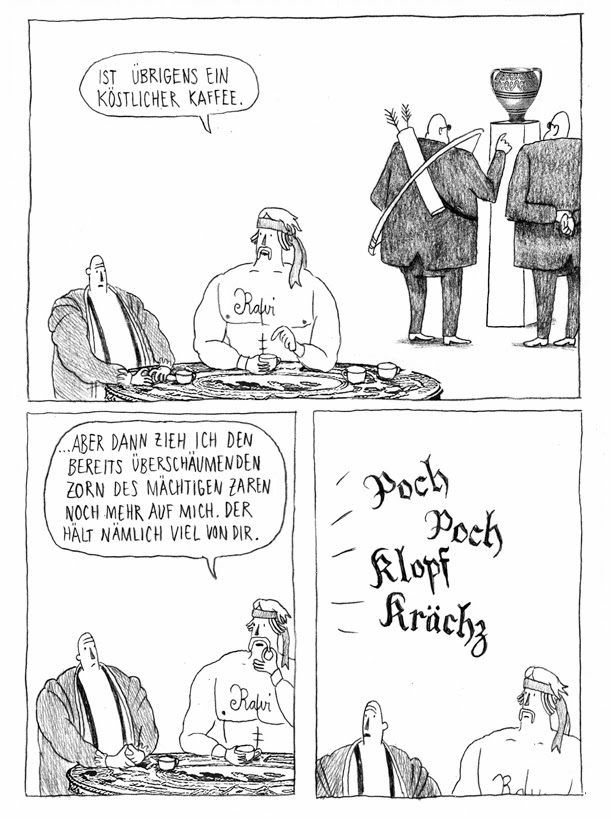 IST ÜBRIGENS EIN
KÖSTLICHER KAFFEE.
Ravi
...ABER DANN ZIEH ICH DEN
BEREITS ÜBERSCHÄUMENDEN
ZORN DES MÄCHTIGEN ZAREN
NOCH MEHR AUF MICH. DER
HÄLT NÄMLICH VIEL VON DIR.
Ravi
Poch
Poch
Klopf
Krächz
Ravi